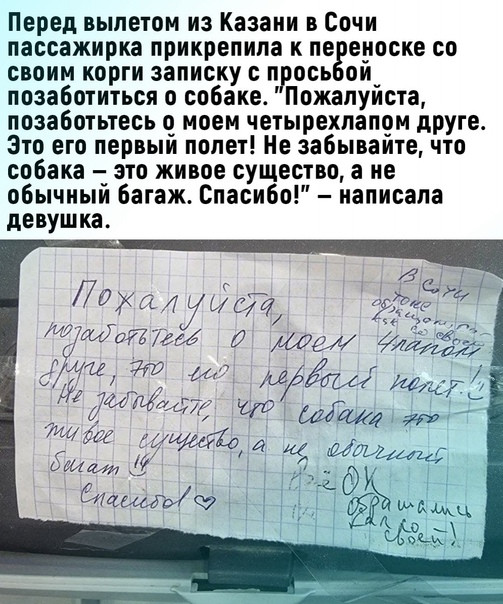 Перед вылетом из Казани в Сочи
пассажирка прикрепила к переноске со
своим корги записку с просьбой
позаботиться о собаке. "Пожалуйста,
позаботьтесь о моем четырехлапом друге.
Это его первый полет! Не забывайте, что
собака – это живое существо, а не
обычный багаж. Спасибо!" – написала
девушка.
Пожалуйста,
позаботьтесь о моем 4лапом
друге, это его первый полет!
Не забывайте, что собака это
живое существо, а не обычный
багаж!!!
Спасибо! ♡
В Сочи
тоже
обращались
как со своей
Всё ОК
обращались
как со
своей!